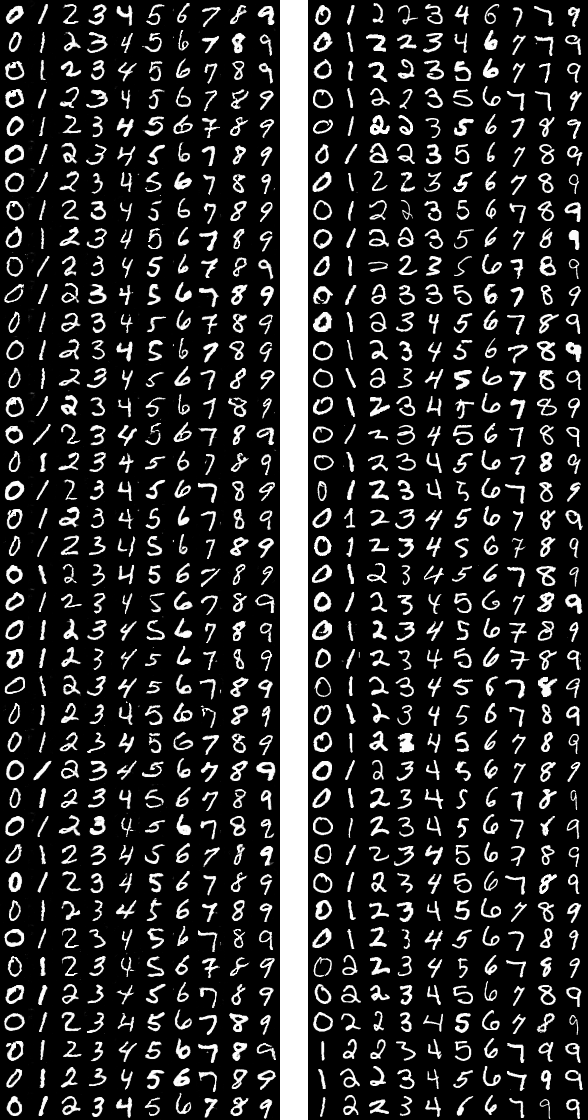 0 1 2 3 4 5 6 7 8 9
0 1 2 3 4 5 6 7 8 9
0 1 2 3 4 5 6 7 8 9
0 1 2 3 4 5 6 7 8 9
0 1 2 3 4 5 6 7 8 9
0 1 2 3 4 5 6 7 8 9
0 1 2 3 4 5 6 7 8 9
0 1 2 3 4 5 6 7 8 9
0 1 2 3 4 5 6 7 8 9
0 1 2 3 4 5 6 7 8 9
0 1 2 3 4 5 6 7 8 9
0 1 2 3 4 5 6 7 8 9
0 1 2 3 4 5 6 7 8 9
0 1 2 3 4 5 6 7 8 9
0 1 2 3 4 5 6 7 8 9
0 1 2 3 4 5 6 7 8 9
0 1 2 3 4 5 6 7 8 9
0 1 2 3 4 5 6 7 8 9
0 1 2 3 4 5 6 7 8 9
0 1 2 3 4 5 6 7 8 9
0 1 2 3 4 5 6 7 8 9
0 1 2 3 4 5 6 7 8 9
0 1 2 3 4 5 6 7 8 9
0 1 2 3 4 5 6 7 8 9
0 1 2 3 4 5 6 7 8 9
0 1 2 3 4 5 6 7 8 9
0 1 2 3 4 5 6 7 8 9
0 1 2 3 4 5 6 7 8 9
0 1 2 3 4 5 6 7 8 9
0 1 2 3 4 5 6 7 8 9
0 1 2 3 4 5 6 7 8 9
0 1 2 3 4 5 6 7 8 9
0 1 2 3 4 5 6 7 8 9
0 1 2 3 4 5 6 7 8 9
0 1 2 3 4 5 6 7 8 9
0 1 2 3 4 5 6 7 8 9
0 1 2 3 4 5 6 7 8 9
0 1 2 3 4 5 6 7 8 9
0 1 2 3 4 5 6 7 8 9
0 1 2 3 4 5 6 7 8 9
0 1 2 2 3 4 6 7 7 9
0 1 2 2 3 4 6 7 7 9
0 1 2 2 3 5 6 7 7 9
0 1 2 2 3 5 6 7 7 9
0 1 2 2 3 5 6 7 8 9
0 1 2 2 3 5 6 7 8 9
0 1 2 2 3 5 6 7 8 9
0 1 2 2 3 5 6 7 8 9
0 1 2 2 3 5 6 7 8 9
0 1 2 2 3 5 6 7 8 9
0 1 2 3 3 5 6 7 8 9
0 1 2 3 4 5 6 7 8 9
0 1 2 3 4 5 6 7 8 9
0 1 2 3 4 5 6 7 8 9
0 1 2 3 4 5 6 7 8 9
0 1 2 3 4 5 6 7 8 9
0 1 2 3 4 5 6 7 8 9
0 1 2 3 4 5 6 7 8 9
0 1 2 3 4 5 6 7 8 9
0 1 2 3 4 5 6 7 8 9
0 1 2 3 4 5 6 7 8 9
0 1 2 3 4 5 6 7 8 9
0 1 2 3 4 5 6 7 8 9
0 1 2 3 4 5 6 7 8 9
0 1 2 3 4 5 6 7 8 9
0 1 2 3 4 5 6 7 8 9
0 1 2 3 4 5 6 7 8 9
0 1 2 3 4 5 6 7 8 9
0 1 2 3 4 5 6 7 8 9
0 1 2 3 4 5 6 7 8 9
0 1 2 3 4 5 6 7 8 9
0 1 2 3 4 5 6 7 8 9
0 1 2 3 4 5 6 7 8 9
0 1 2 3 4 5 6 7 8 9
0 2 2 3 4 5 6 7 8 9
0 2 2 3 4 5 6 7 8 9
0 2 2 3 4 5 6 7 8 9
1 2 2 3 4 5 6 7 9 9
1 2 2 3 4 5 6 7 9 9
1 2 2 3 4 6 7 9 9